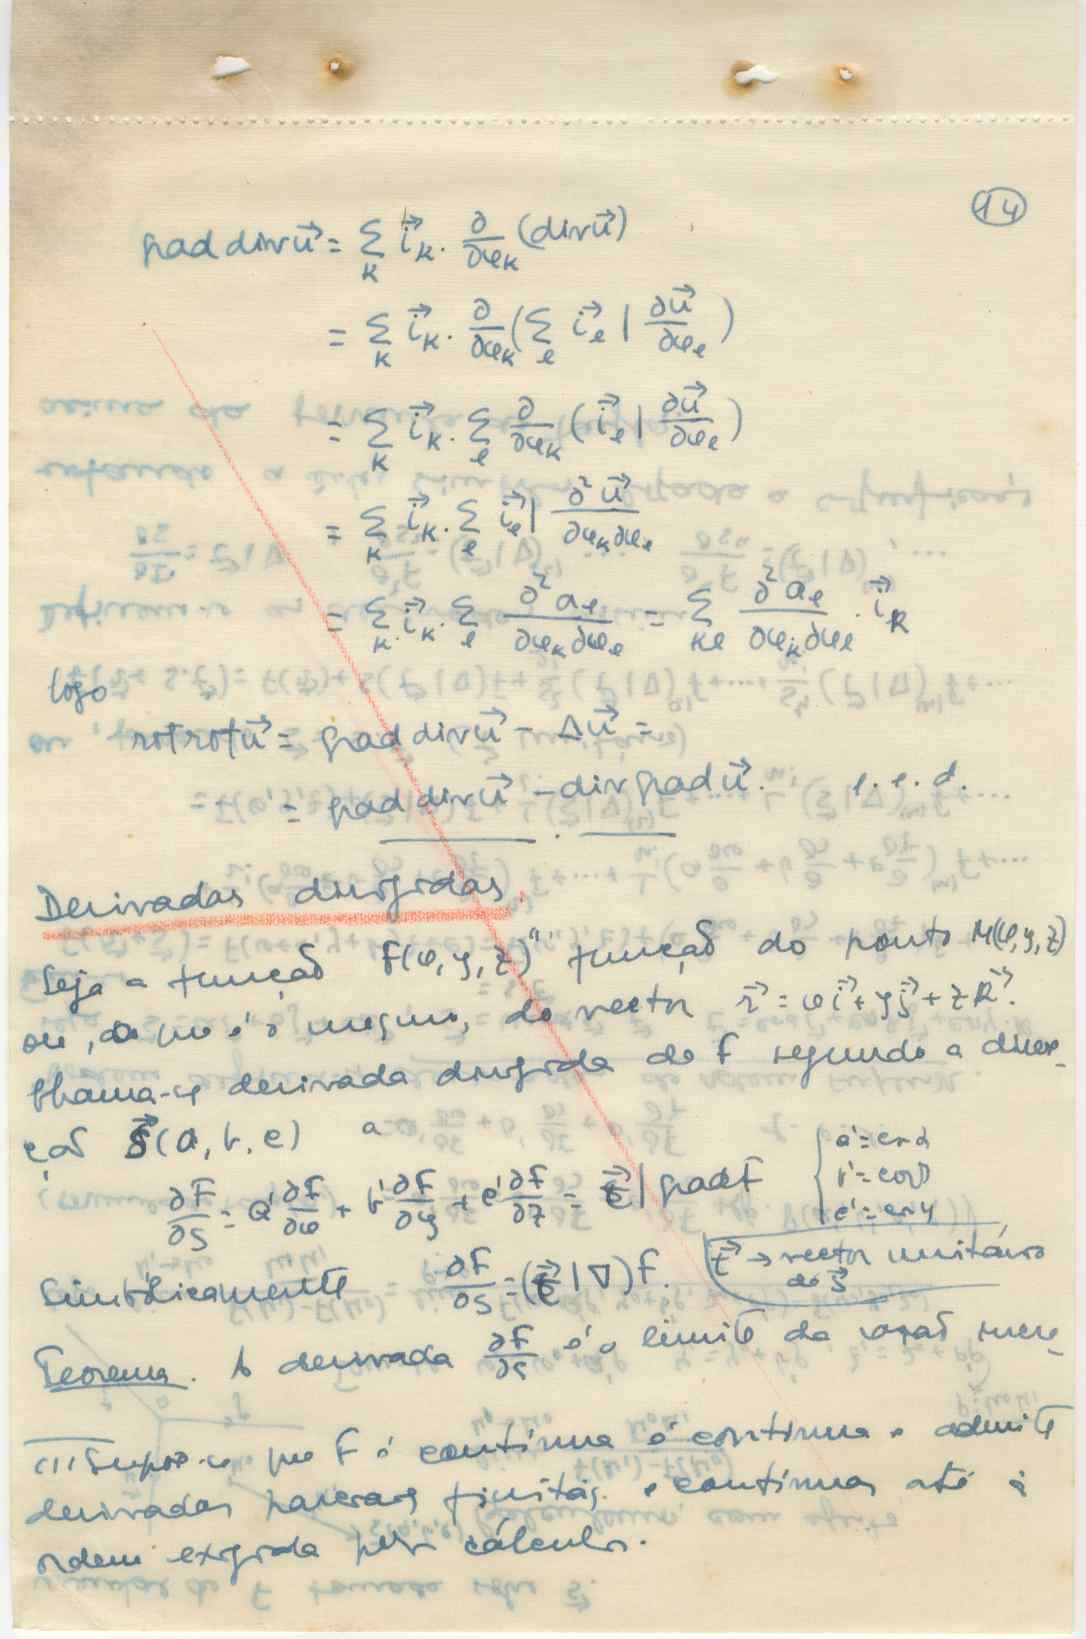 14
grad div u⃗ = Σ_k i⃗_k · ∂/∂x_k (div u⃗)
= Σ_k i⃗_k · ∂/∂x_k (Σ_e i⃗_e | ∂u⃗/∂x_e)
= Σ_k i⃗_k · Σ_e ∂/∂x_k (i⃗_e | ∂u⃗/∂x_e)
= Σ_k i⃗_k · Σ_e i⃗_e | ∂²u⃗/∂x_k∂x_e
= Σ_k i⃗_k · Σ_e ∂²a_e/∂x_k∂x_e = Σ_ke ∂²a_e/∂x_k∂x_e · i⃗_k
logo
rot rot u⃗ = grad div u⃗ − Δu⃗ =
= grad div u⃗ − div grad u⃗. c.q.d.
Derivadas dirigidas.
Seja a função F(x,y,z)''' função do ponto M(x,y,z)
ou, o que é o mesmo, do vector r⃗ = x i⃗ + y j⃗ + z k⃗.
Chama-se derivada dirigida de F segundo a direc-
ção S⃗(a, b, c) a
∂F/∂S = a' ∂F/∂x + b' ∂F/∂y + c' ∂F/∂z = t⃗ | grad F
{ a' = cos α
b' = cos β
c' = cos γ
Simbòlicamente ∂F/∂S = (t⃗ | ∇) F.
t⃗ → vector unitário
de S⃗
Teorema. A derivada ∂F/∂S é o limite da razão incre-
(1) Supõe-se que F é contínua é contínua e admite
derivadas parciais finitas e contínuas até à
ordem exigida pelo cálculo.